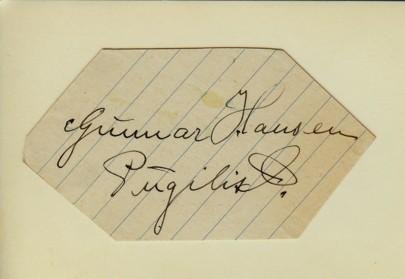 Gunnar Hansen
Pugilist.